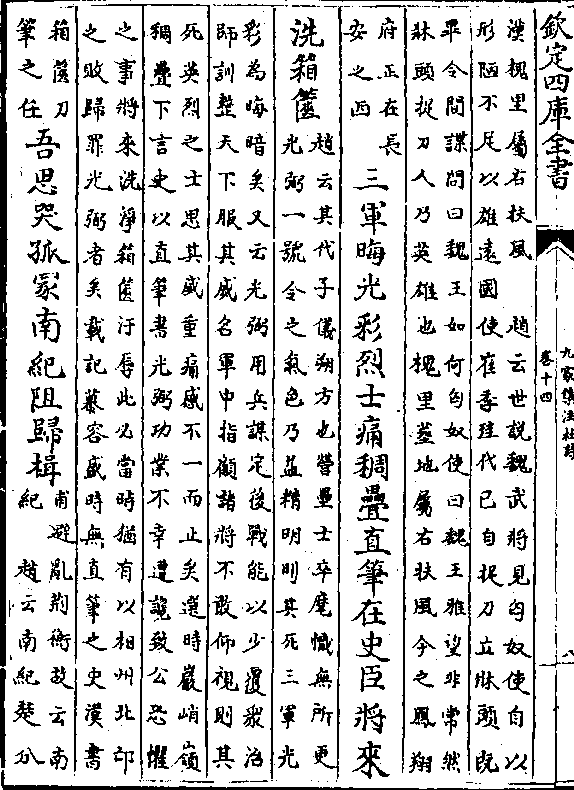 欽定四庫全書
九家集注杜詩
卷十四
八
漢槐里屬右扶風　趙云世說魏武將見匈奴使自以
形陋不足以雄遠國使崔季珪代已自捉刀立牀頭既
畢令間諜問曰魏王如何匈奴使曰魏王雅望非常然
牀頭捉刀人乃英雄也槐里葢地屬右扶風今之鳳翔
府正在長
安之西
三軍晦光彩烈士痛稠疊直筆在史臣將來
洗箱篋
趙云其代子儀朔方也營壘士卒麾幟無所更
光弼一號令之氣色乃益精明則其死三軍光
彩為晦暗矣又云光弼用兵謀定後戰能以少覆衆治
師訓整天下服其威名軍中指顧諸將不敢仰視則其
死英烈之士思其威重痛感不一而止矣選時巖峭嶺
稠疊下言史以直筆書光弼功業不幸遭讒致公恐懼
之事將來洗淨箱篋汙辱此必當時猶有以相州北邙
之敗歸罪光弼者矣載記慕容盛時無直筆之史漢書
箱篋刀
筆之任
吾思哭孤冢南紀阻歸楫
甫避亂荆衡故云南
紀　趙云南紀楚分